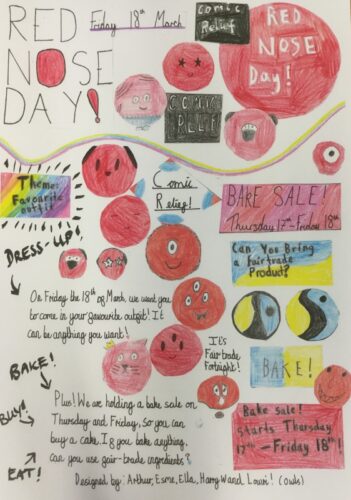 RED
NOSE
DAY!
Friday 18th March
Comic
Relief
RED
NOSE
Day!
COMIC
RELIEF
Theme:
Favourite
outfit
Comic
Relief!
BAKE SALE!
Thursday 17th-Friday 18th
DRESS-UP!
Can You Bring
a fairtrade
Product?
On Friday the 18th of March we want you
to come in your favourite outfit! It
can be anything you want!
BAKE!
It's
Fairtrade
Fortnight!
BAKE!
Plus! We are holding a bake sale on
Thursday and Friday, so you can
buy a cake. If you bake anything,
can you use fair-trade ingredients?
BUY!
EAT!
Bake sale!
Starts Thursday
17th-Friday 18th!
Designed by: Arthur, Esme, Ella, Harry W and Louis! (Owls)